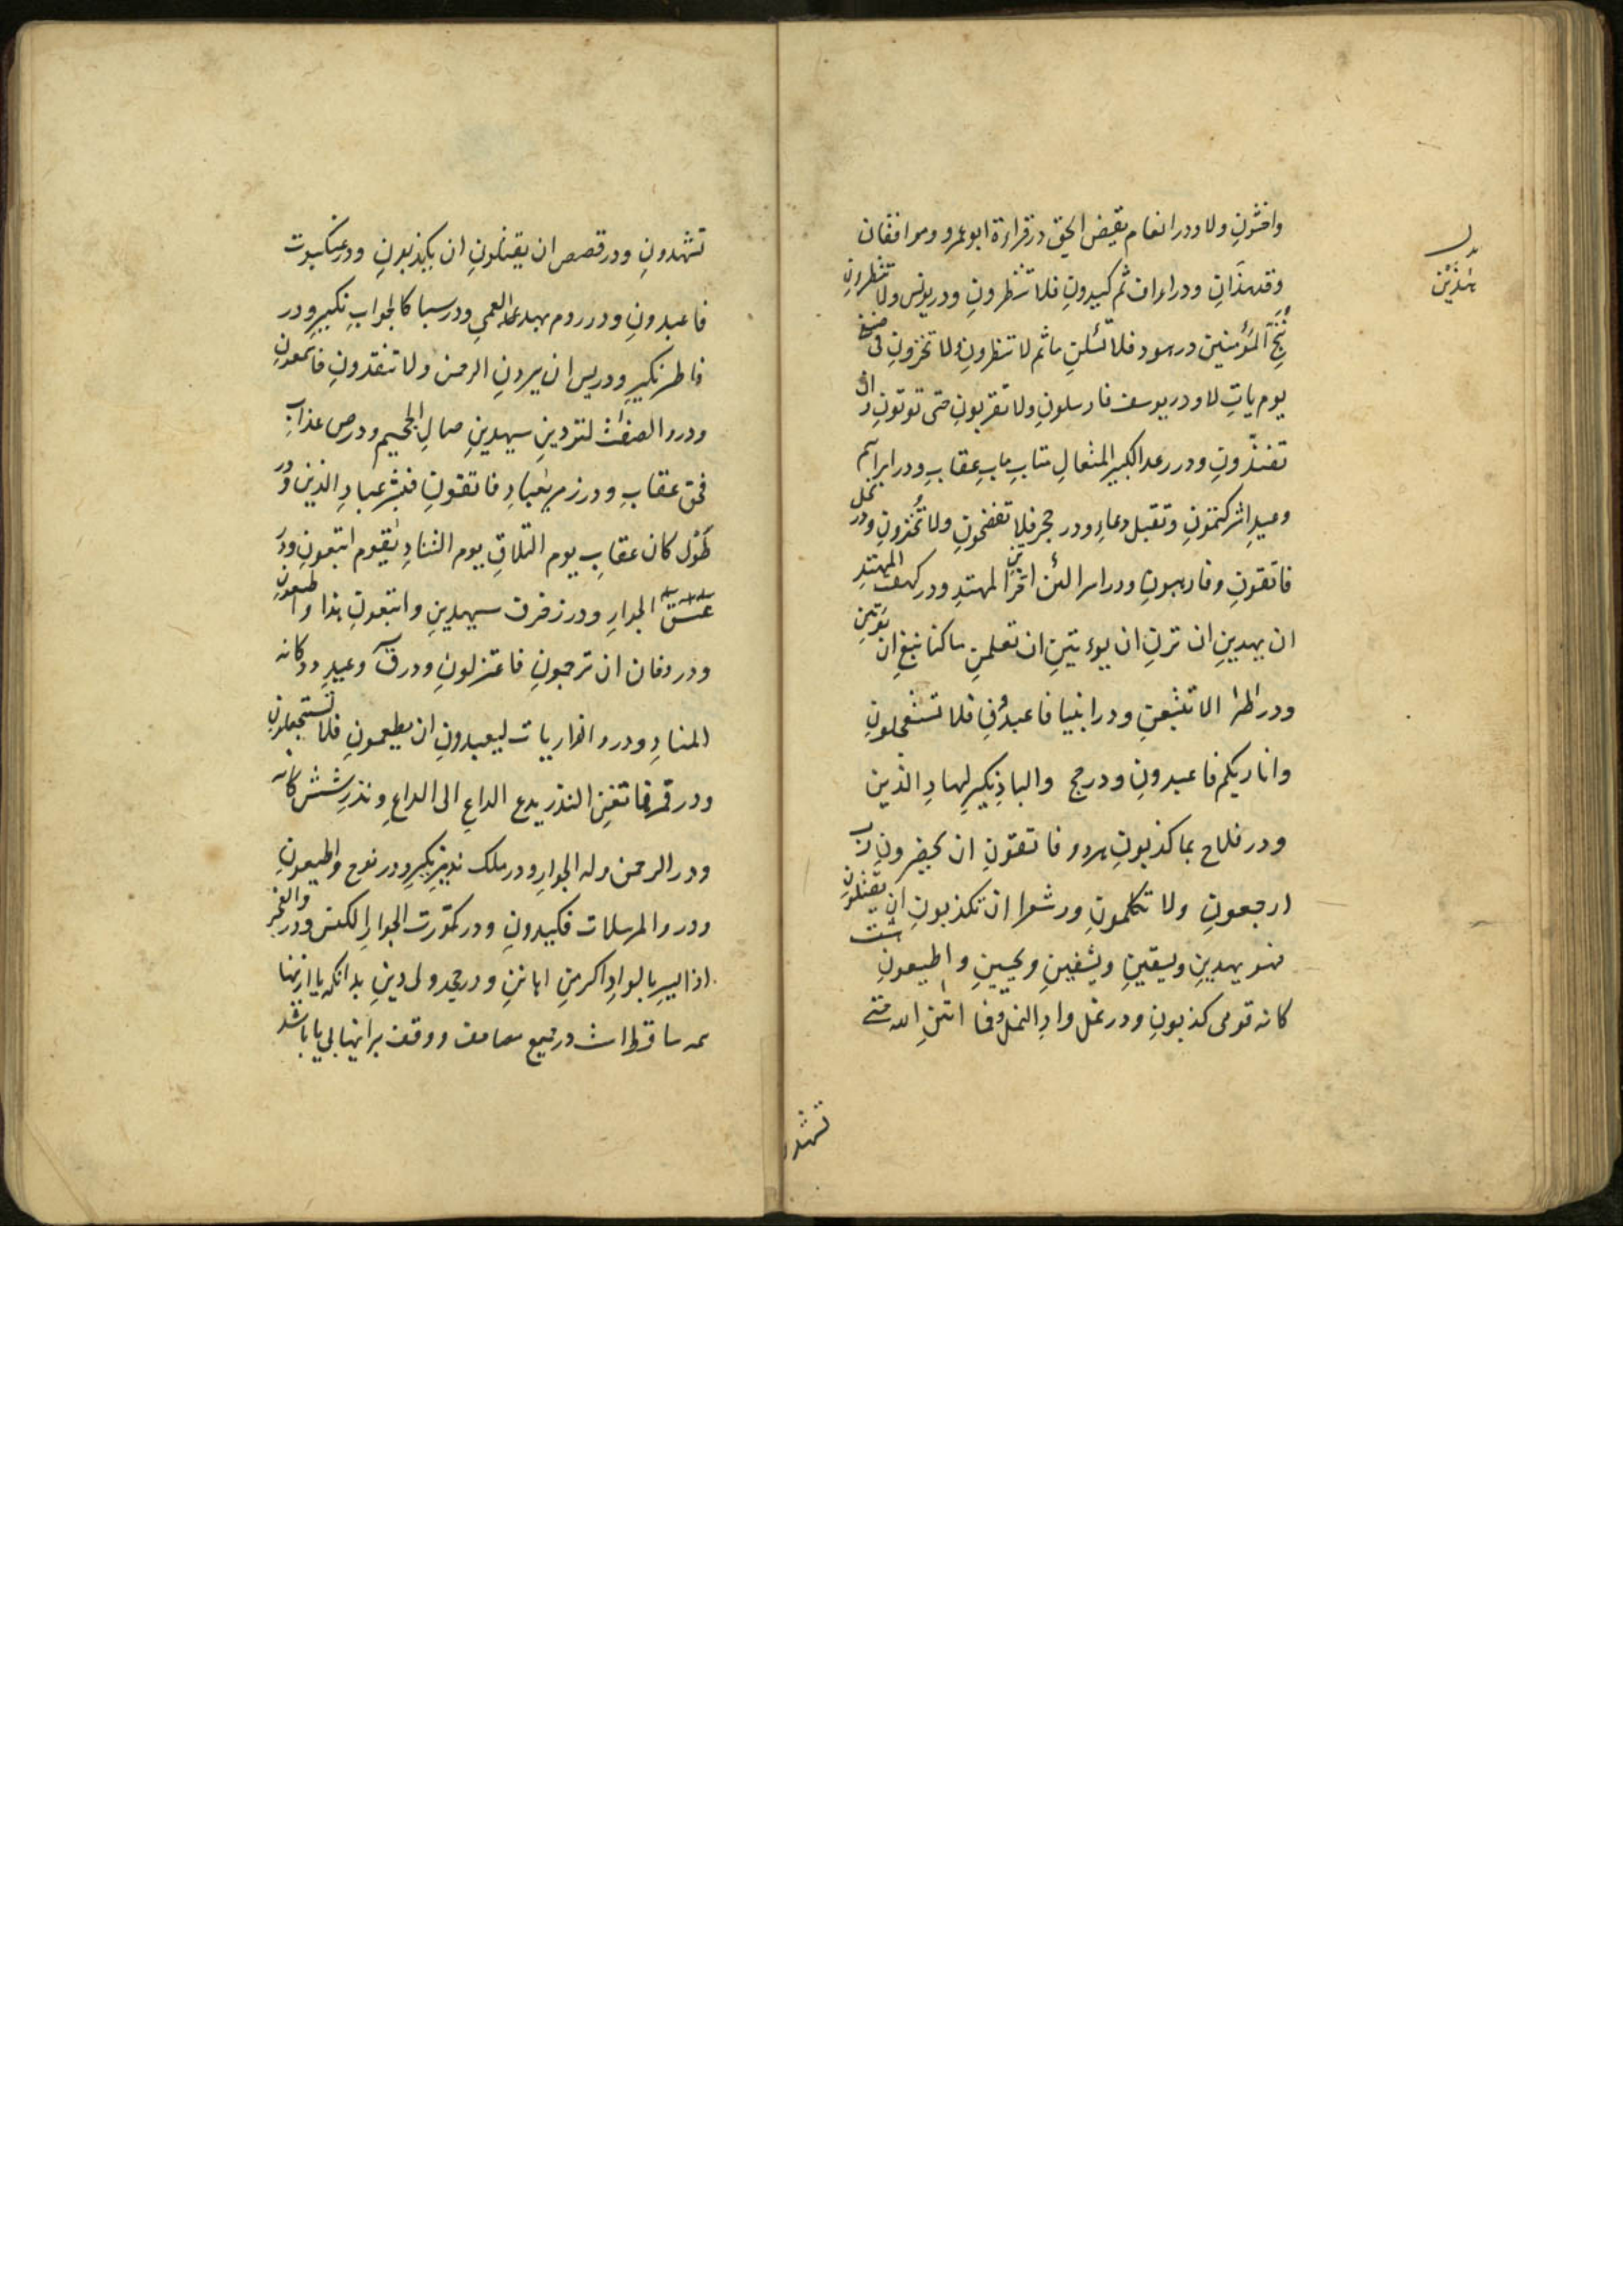 واخشونِ ولا ودر انعام يقض الحق در قراءة ابو عمرو وموافقان
وقد هدانِ ودر اعراف ثم كيدونِ فلا تنظرونِ ودر يونس ولا تنظرونِ
ننجِ المؤمنين در هود فلا تسئلنِ ثم لا تنظرونِ ولا تخزونِ فى ضيفى
يوم ياتِ لا ودر يوسف فارسلونِ ولا تقربونِ حتى توتونِ
تفندونِ ودر رعد الكبير المتعالِ متابِ مابِ عقابِ ودر ابراهيم
وعيدِ اشركتمونِ وتقبل دعاءِ ودر حجر فلا تفضحونِ ولا تخزونِ ودر نحل
فاتقونِ وفارهبونِ ودر اسرا لئن اخرتنِ المهتدِ ودر كهف المهتدِ
ان يهدينِ ان ترنِ ان يوءتينِ ان تعلمنِ ما كنا نبغِ
ودر طه الا تتبعنِ ودر انبيا فاعبدونِ فلا تستعجلونِ
وانا ربكم فاعبدونِ ودر حج والبادِ نكيرِ لهادِ الذين
ودر فلاح بما كذبونِ هر دو فاتقونِ ان يحضرونِ رب
ارجعونِ ولا تكلمونِ ودر شعرا ان تكذبونِ ان يقتلونِ
فهو يهدينِ ويسقينِ ويشفينِ ويحيينِ واطيعونِ هشت
كانه قومى كذبونِ ودر نمل وادِ النمل وفما اتنِ الله حتى
تشهدو
هٰذَيْن
تشهدونِ ودر قصص ان يقتلونِ ان يكذبونِ ودر عنكبوت
فاعبدونِ ودر روم بهد العمى ودر سبا كالجوابِ نكيرِ ودر
فاطر نكيرِ ودر يس ان يردنِ الرحمن ولا تنقذونِ فاسمعونِ
ودر والصفت لتردينِ سيهدينِ صالِ الجحيم ودر ص عذابِ
فحق عقابِ ودر زمر يعبادِ فاتقونِ فبشر عبادِ الذين ودر
طول كان عقابِ يوم التلاقِ يوم التنادِ يقوم اتبعونِ ودر
عسق الجوارِ ودر زخرف سيهدينِ واتبعونِ هذا واطيعونِ
ودر دخان ان ترجمونِ فاعتزلونِ ودر ق وعيدِ دو كانه
المنادِ ودر والذاريات ليعبدونِ ان يطعمونِ فلا تستعجلونِ
ودر قمر فما تغنِ النذر يدع الداعِ الى الداعِ ونذرِ شش كانه
ودر الرحمن وله الجوارِ ودر ملك نذيرِ نكيرِ ودر نوح واطيعونِ
ودر والمرسلات فكيدونِ ودر كورت الجوارِ الكنس ودر والفجر
اذا يسرِ بالوادِ اكرمنِ اهاننِ ودر جحد ولى دينِ بدانكه يا ازينها
همه ساقط است در جميع مصاحف ووقف بر اينها بى يا باشد